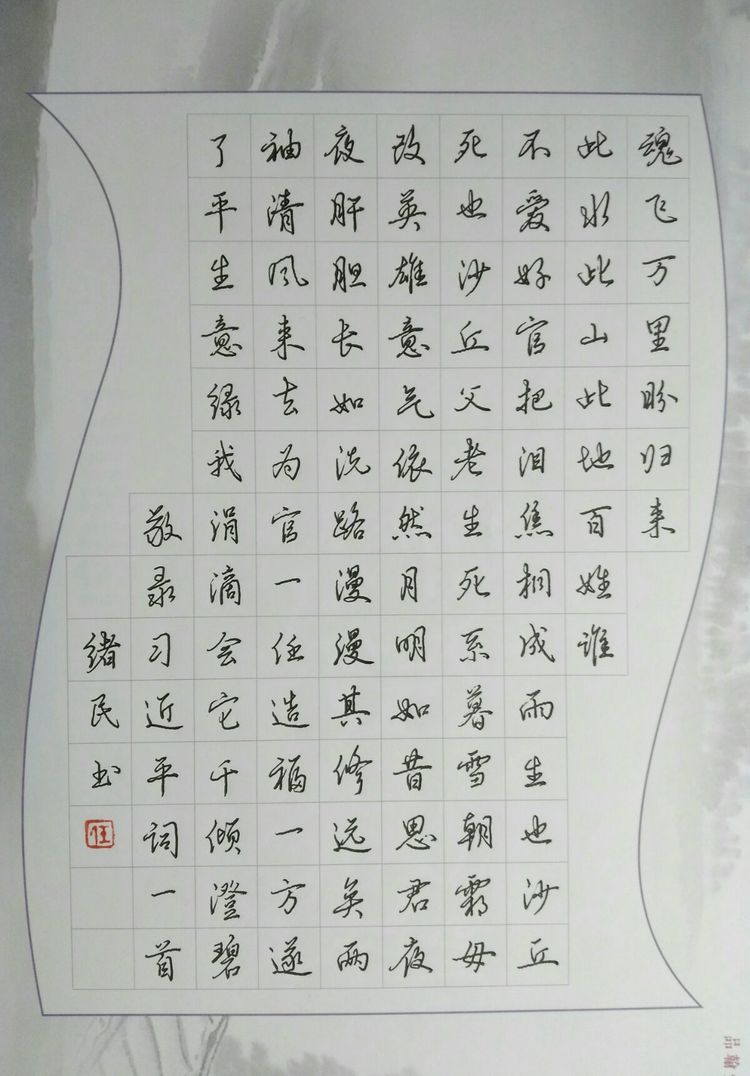 魂飞万里盼归来
此水此山此地百姓谁
不爱好官把泪焦桐成雨生也沙丘
死也沙丘父老生死系暮雪朝霜毋
改英雄意气依然月明如昔思君夜
夜肝胆长如洗路漫漫其修远矣两
袖清风来去为官一任造福一方遂
了平生意绿我涓滴会它千倾澄碧
敬录习近平词一首
绪民书